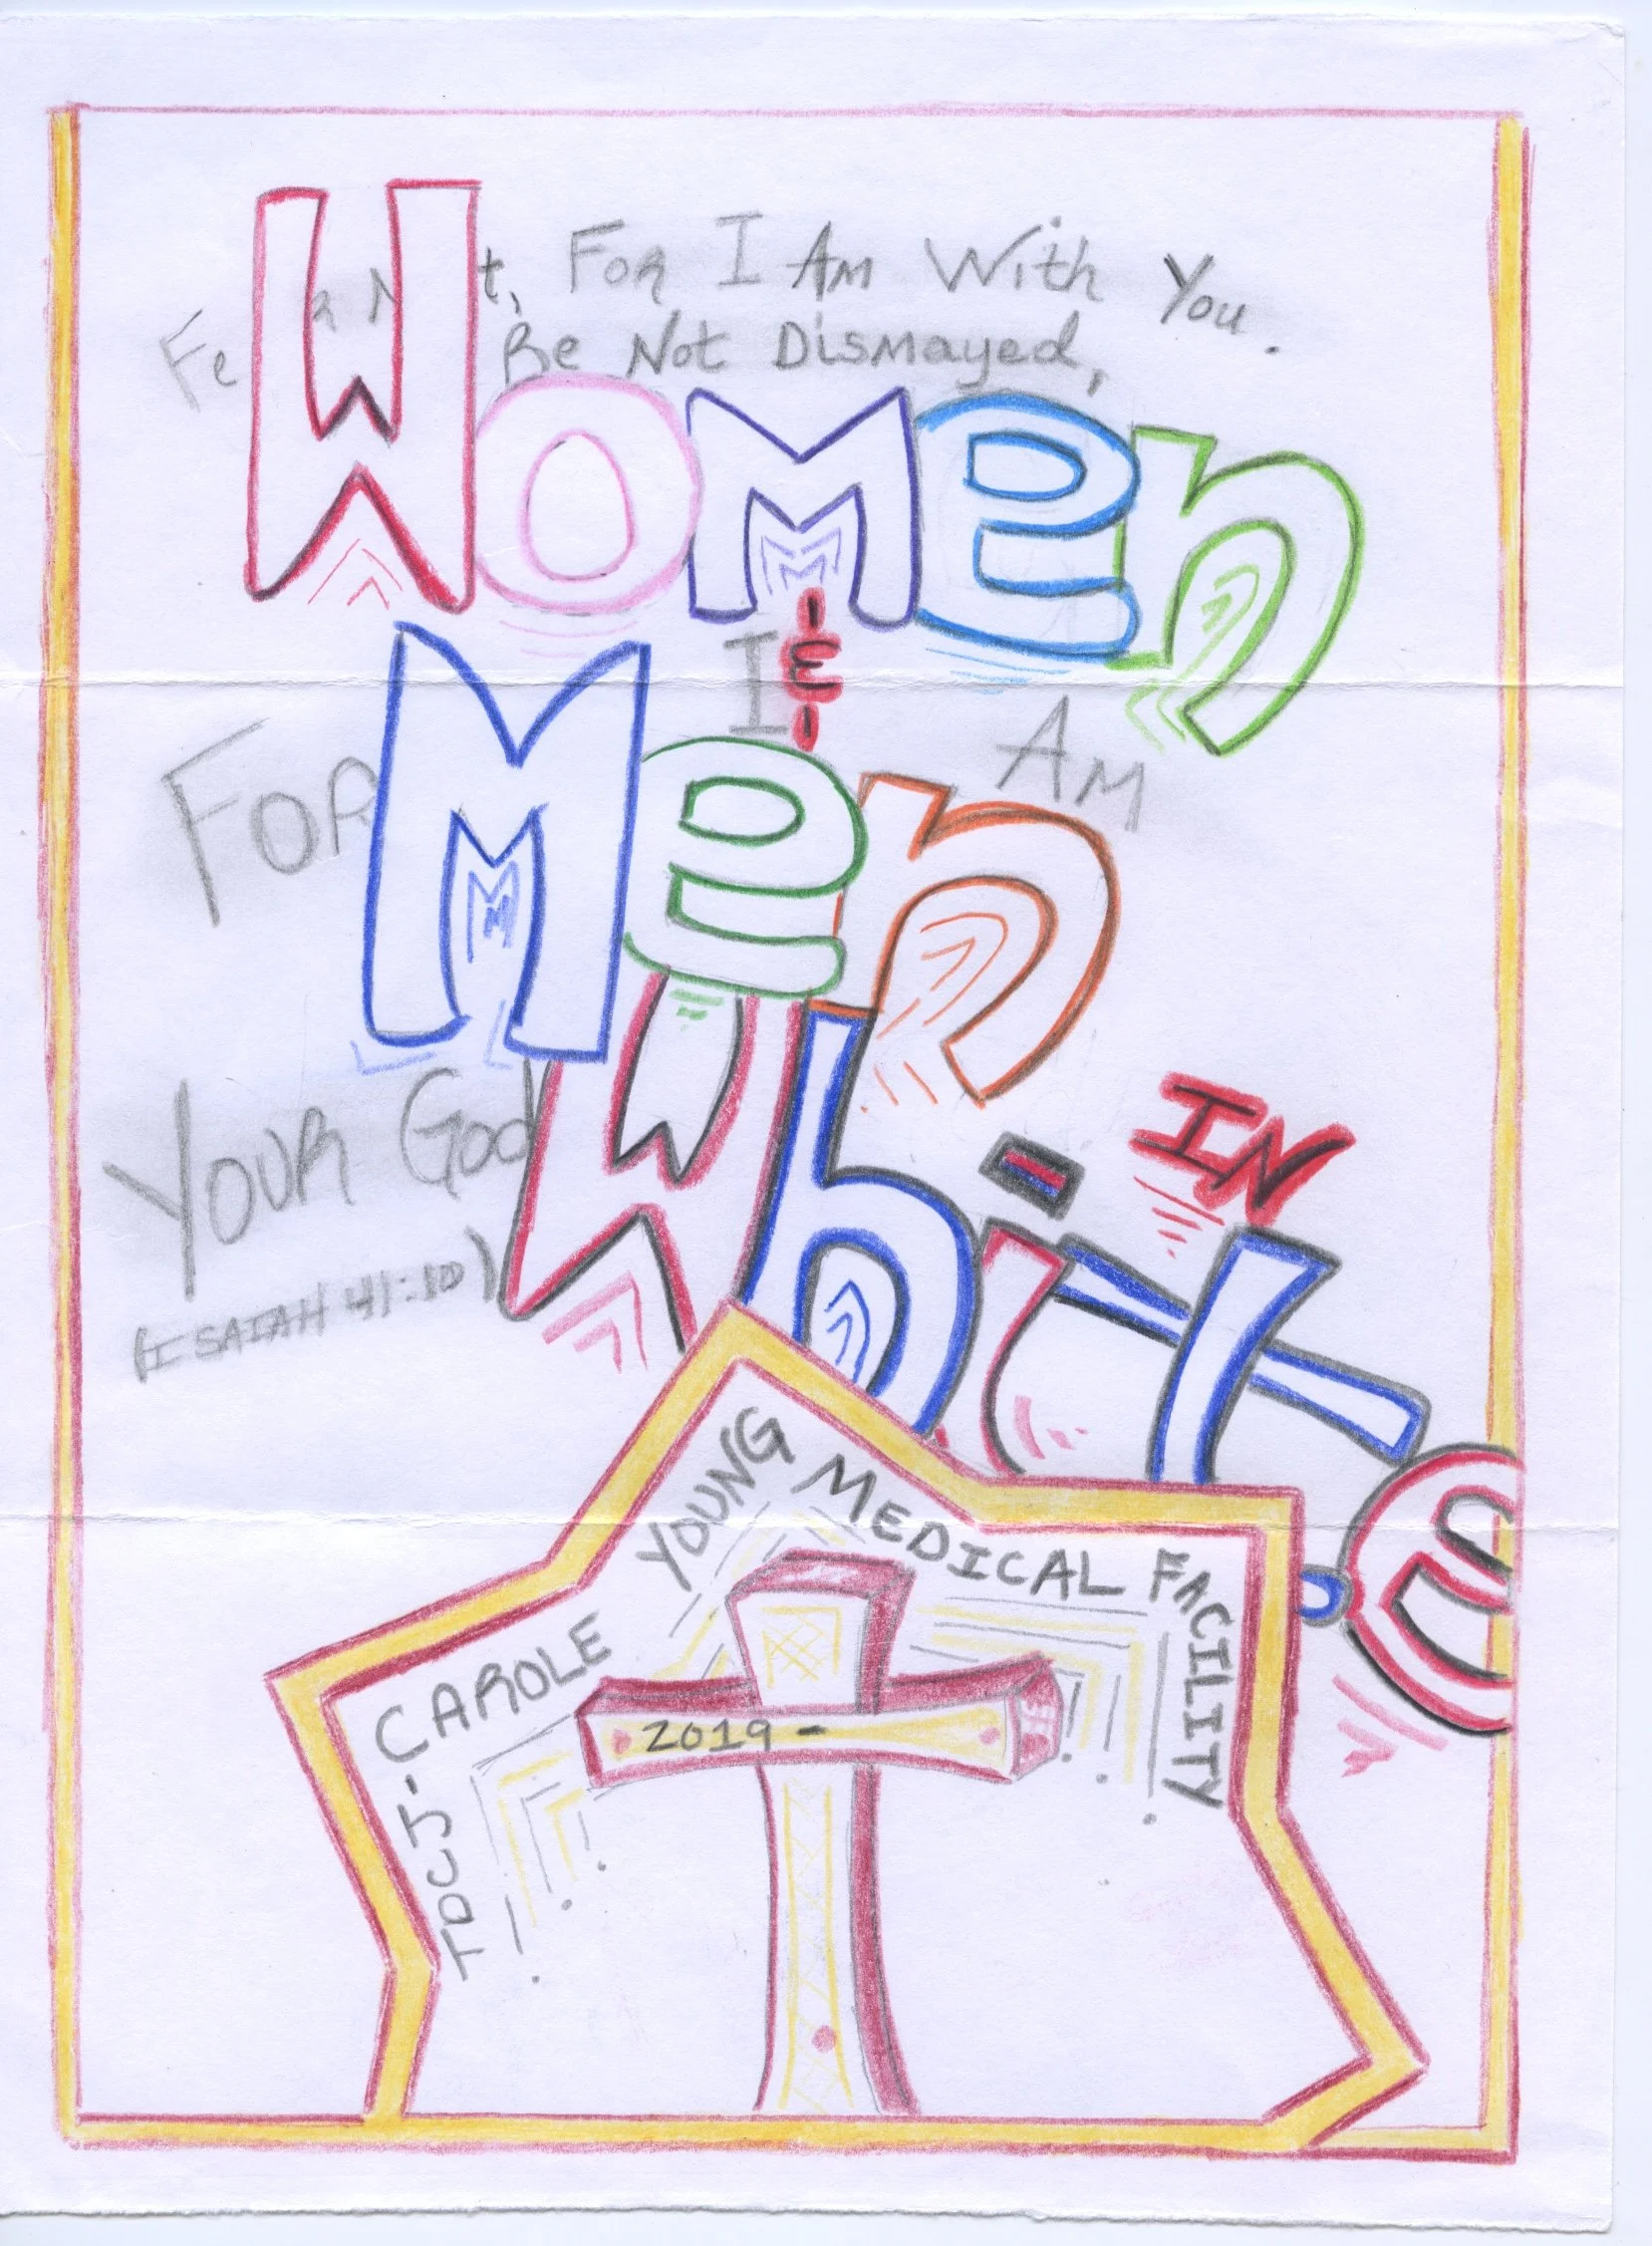 Fear Not, For I Am With You.
Be Not Dismayed,
Women
&
For I Am
Men
Your God
IN
White
(ISAIAH 41:10)
TDCJ-CAROLE YOUNG MEDICAL FACILITY
2019-